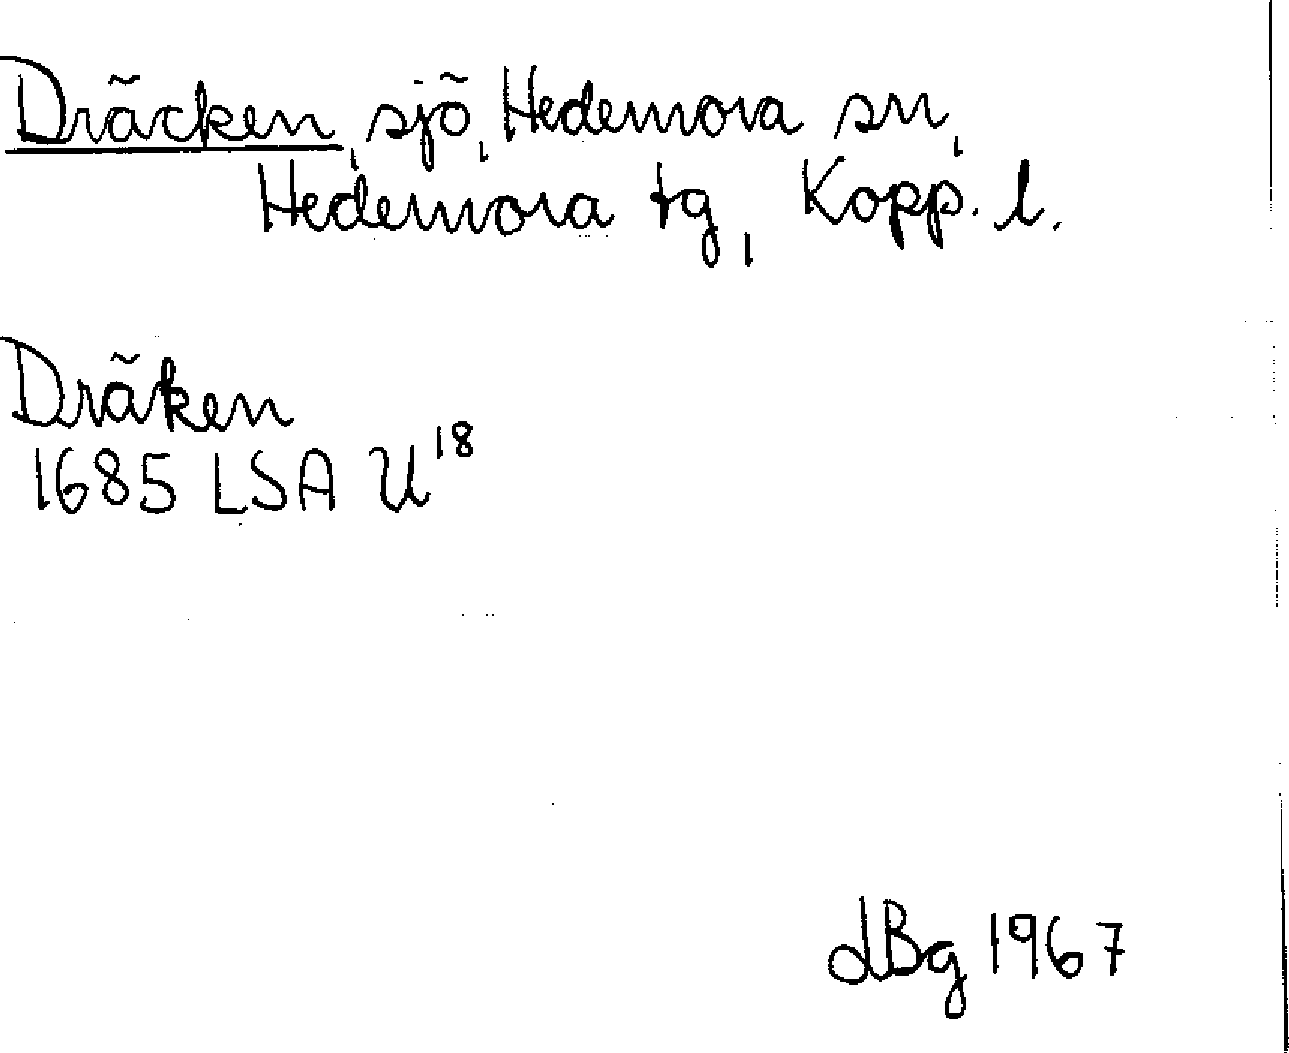 Dräcken, sjö, Hedemora sn,
Hedemora tg, Kopp. l.
Dräken
1685 LSA U¹⁸
dBg 1967